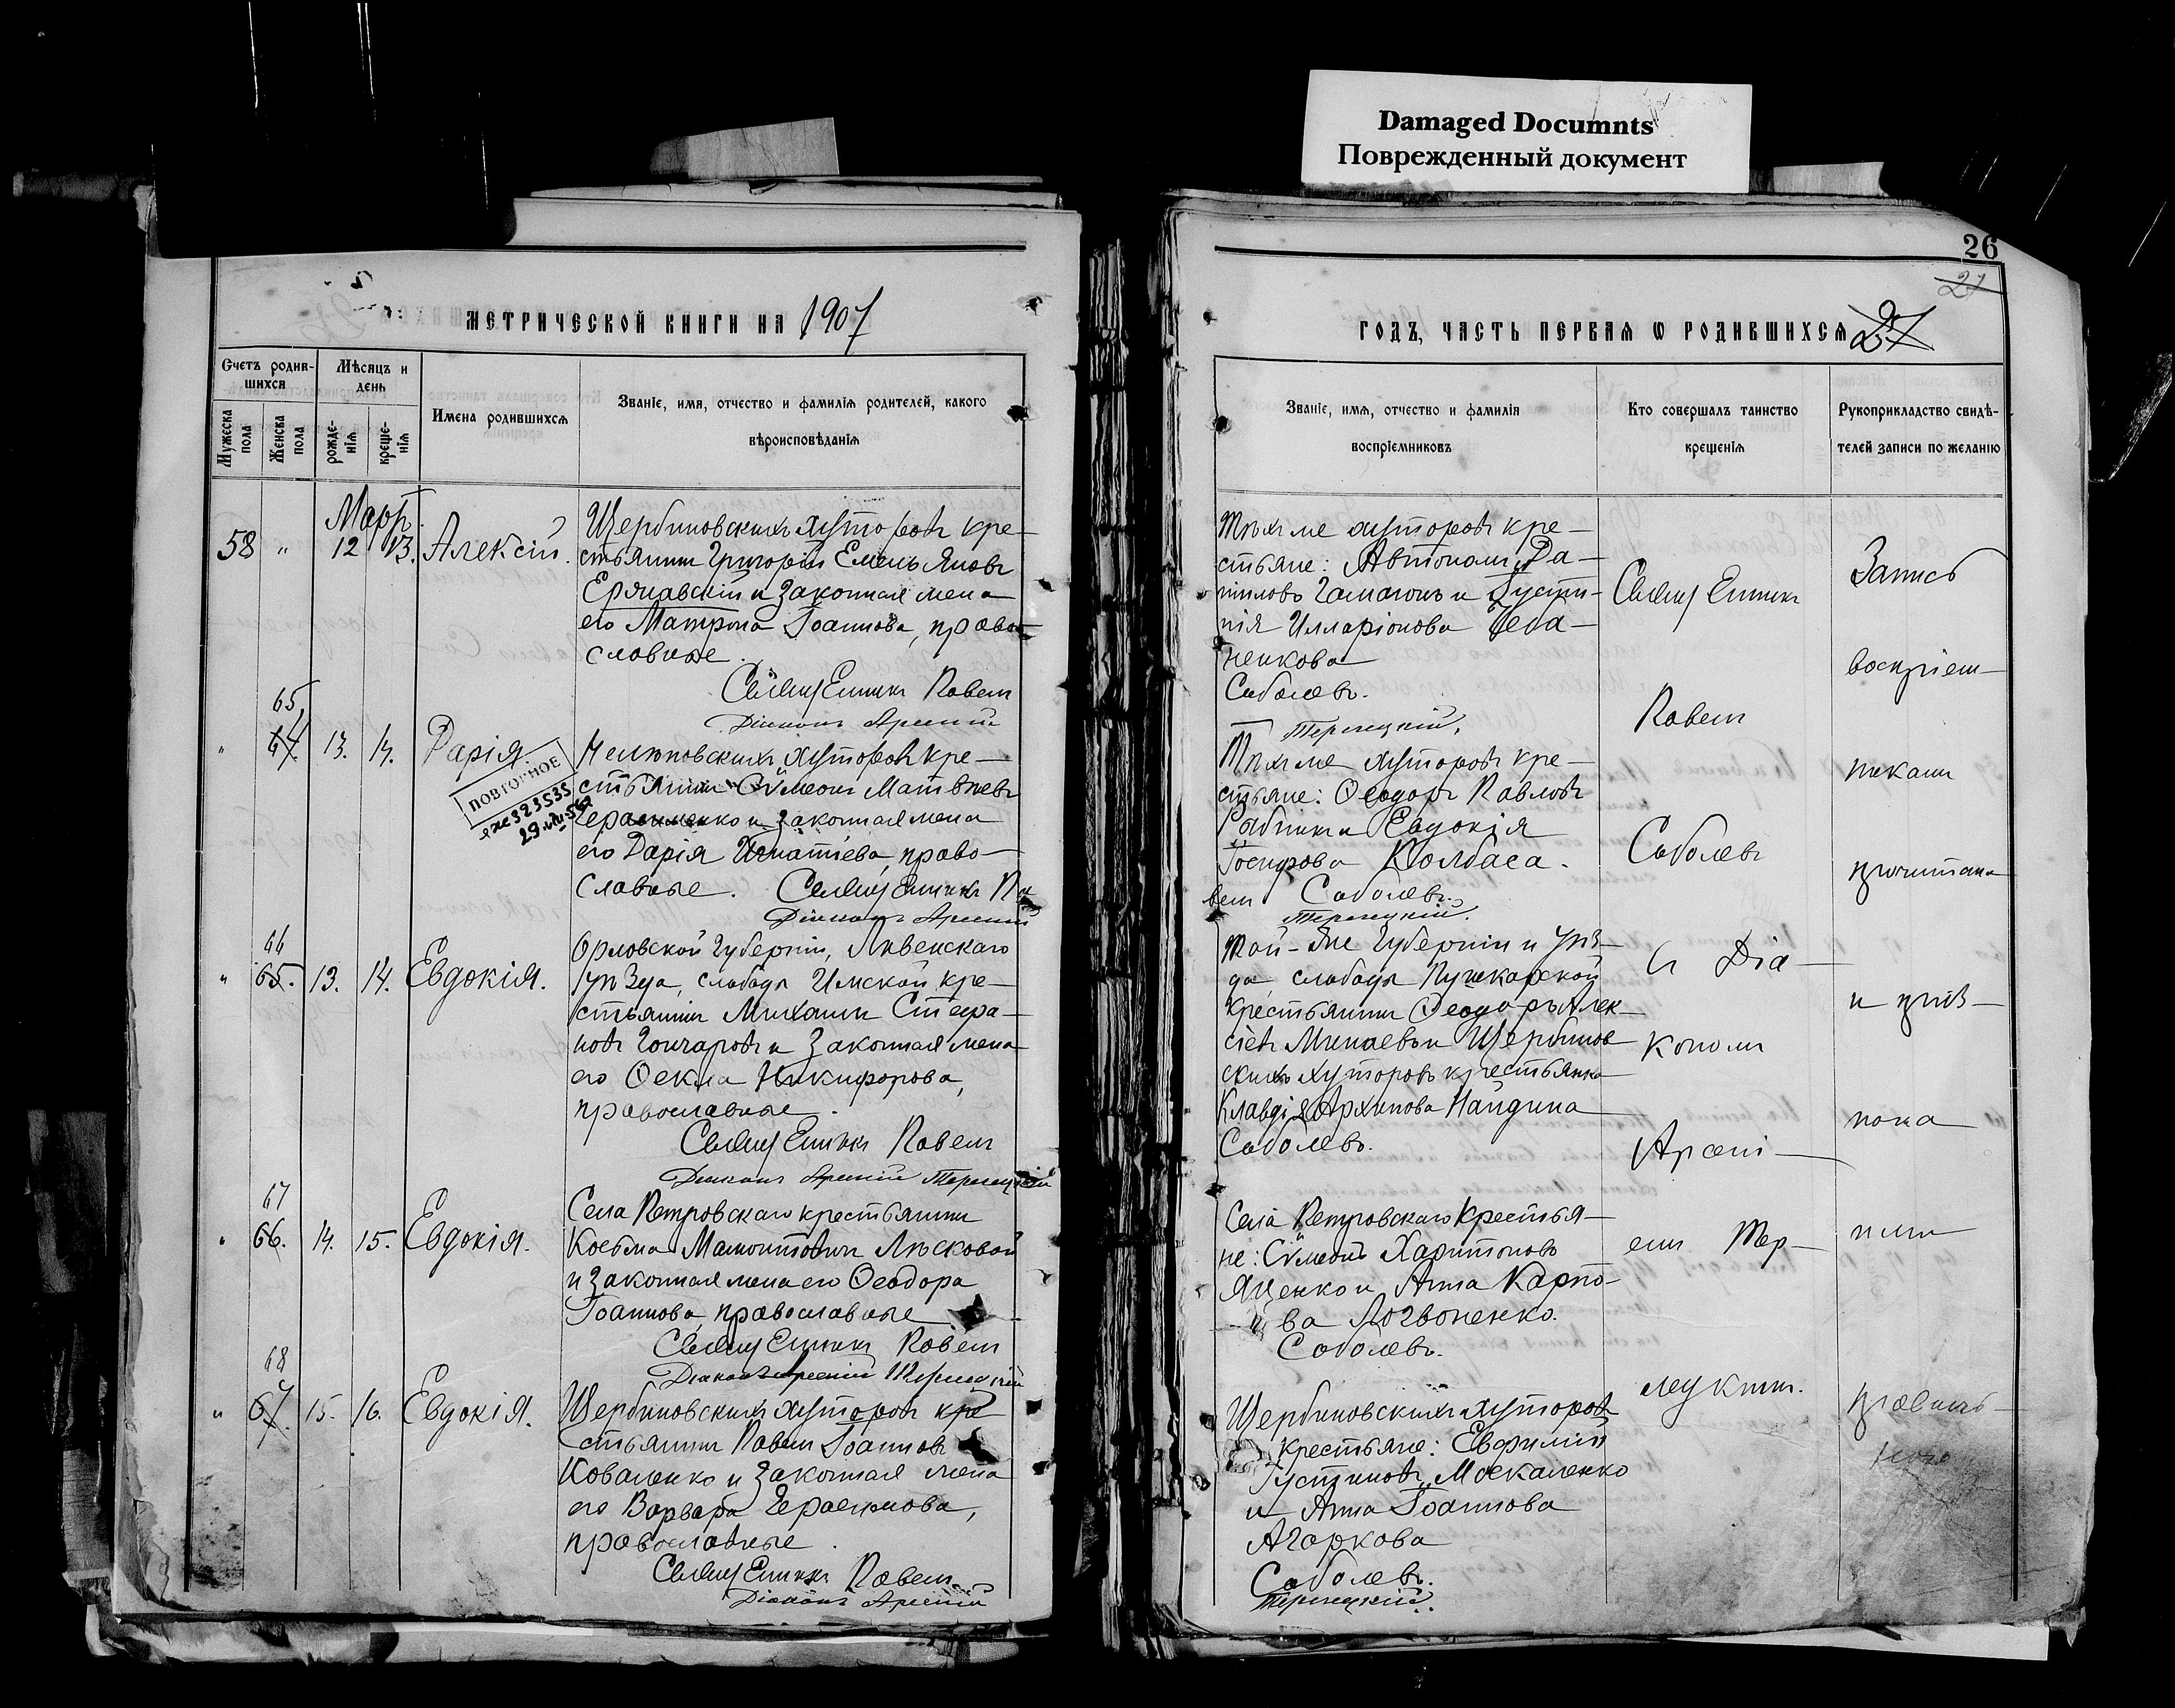 Damaged Documnts
Поврежденный документ
26
27
МЕТРИЧЕСКОЙ КНИГИ НА 1907
ГОДЪ, ЧАСТЬ ПЕРВАЯ Ѡ РОДИВШИХСЯ
27
Счетъ родив-
шихся
Мѣсяцъ и
день
Мужеска
пола
Женска
пола
рожде-
нія
креще-
нія
Имена родившихся
Званіе, имя, отчество и фамилія родителей, какого
вѣроисповѣданія
Званіе, имя, отчество и фамилія
воспріемниковъ
Кто совершалъ таинство
крещенія
Рукоприкладство свидѣ-
телей записи по желанію
Март.
58 " 12 13. Алексій.
Щербиновскихъ хуторовъ кре-
стьянинъ Григорій Емельяновъ
и законная жена
его Матрона Іоаннова, право-
славные.
Священникъ Павелъ
Діаконъ Арсеній
Тѣхъ же хуторовъ кре-
стьяне: Автономъ Да-
ниловъ и Іусти-
нія Илларіонова Чеба-
ненкова
Соболевъ.
Терлецкій.
65
" 64. 13. 14. Дарія
ПОВТОРНОЕ
хуторовъ кре-
стьянинъ Сѵмеонъ Матвѣевъ
Герасименко и законная жена
его Дарія Игнатіева, право-
славные. Священникъ Па
Діаконъ Арсеній
Тѣхъ же хуторовъ кре-
стьяне: Ѳеодоръ Павловъ
Евдокія
Іосифова Колбаса.
велъ Соболевъ.
Терлецкій.
66
" 65. 13. 14. Евдокія.
Орловской губерніи, Ливенскаго
уѣзда, слободы Ямской кре-
стьянинъ Михаилъ Стефа-
новъ Гончаровъ и законная жена
его Ѳекла Никифорова,
православные.
Священникъ Павелъ
Діаконъ Арсеній Терлецкій
Той-же губерніи и уѣз-
да, слободы Пушкарской
крестьянинъ Ѳеодоръ Алек-
сѣевъ Минаевъ и Щербинов
скихъ хуторовъ крестьянка
Клавдія Архипова Найдина
Соболевъ.
67
" 66. 14. 15. Евдокія.
Села Петровскаго крестьянинъ
Косьма Мамонтовичъ Лѣсковой
и законная жена его Ѳеодора
Іоаннова, православные
Священникъ Павелъ
Діаконъ Арсеній Терлецкій
Села Петровскаго крестья-
не: Сѵмеонъ Харитоновъ
Яценко и Анна Карпо-
ва Логвоненко.
Соболевъ.
68
" 67. 15. 16. Евдокія.
Щербиновскихъ хуторовъ кре
стьянинъ Павелъ Іоанновъ
Коваленко и законная жена
его Варвара Герасимова,
православные.
Священникъ Павелъ
Діаконъ Арсеній
Щербиновскихъ хуторовъ
крестьяне: Евфимій
Іустиновъ Москаленко
и Анна Іоаннова
Агаркова
Соболевъ.
Терлецкій.
Священникъ
Павелъ
Соболевъ
съ Діа-
кономъ
Арсені-
емъ Тер-
лецкимъ.
Запись
воспріем-
никами
прочитана
и приз-
нана
ими
правиль-
ною